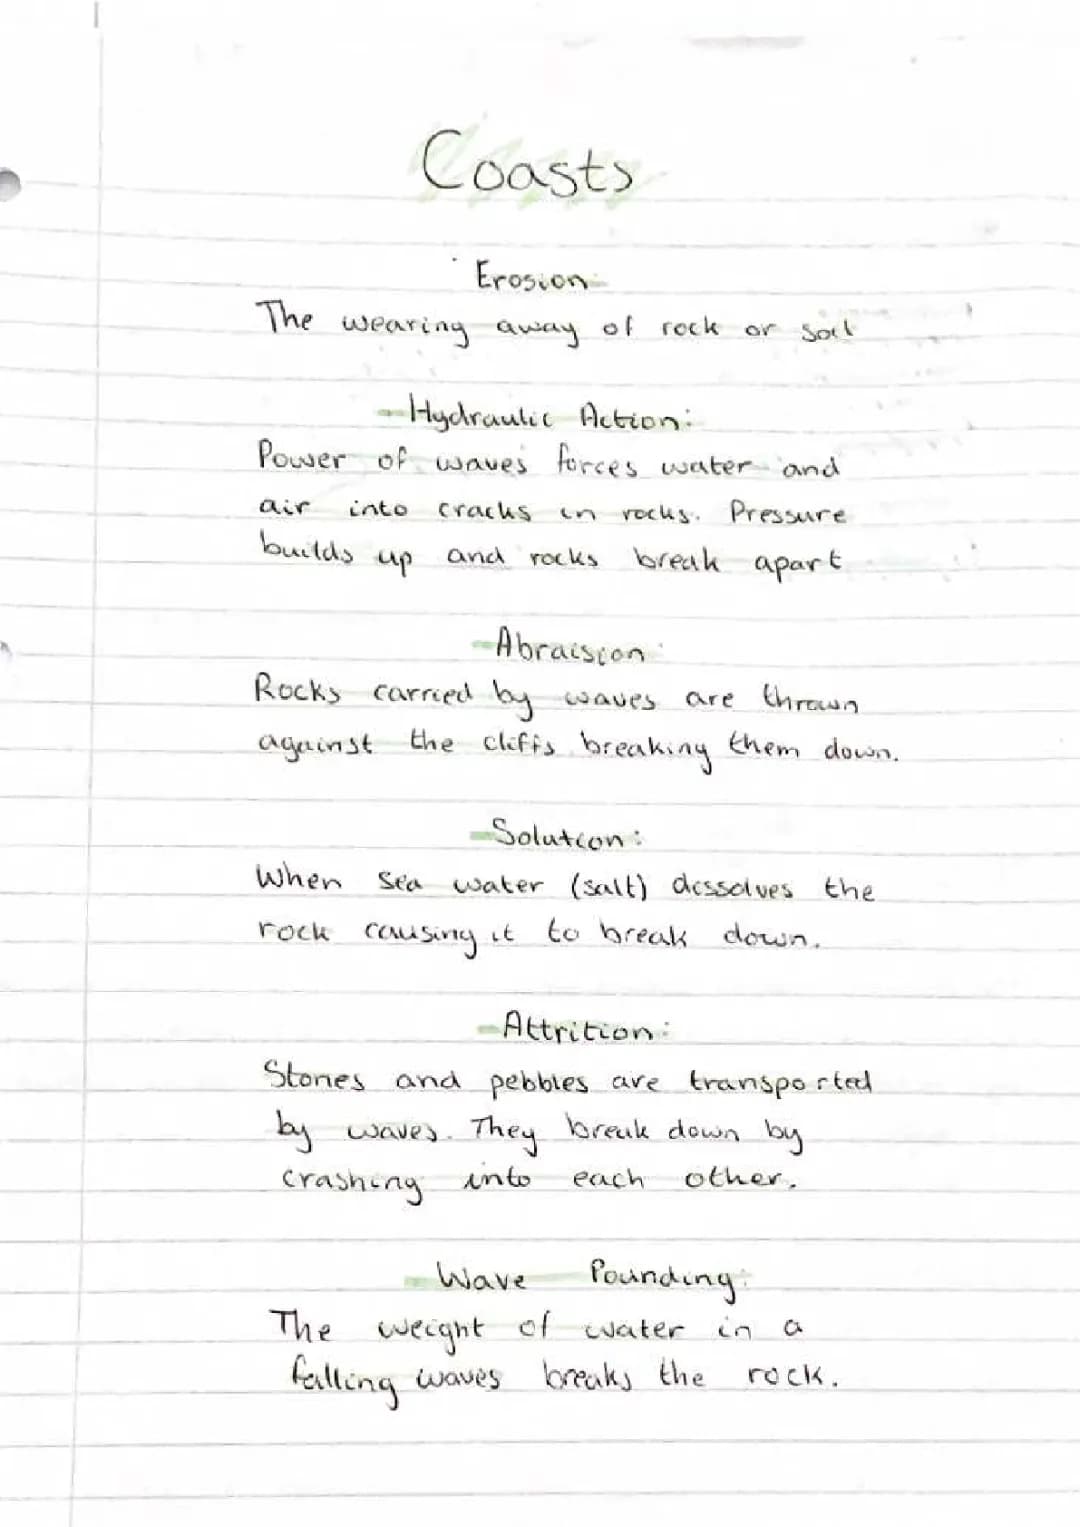 Coasts
Erosion
The wearing away of rock or soil
Hydraulic Action:
Power of waves forces water and
air into cracks in rocks. Pressure
builds up and rocks break apart
Abraision:
Rocks carried by waves are thrown
against the cliffs breaking them down.
Solution:
When sea water (salt) dissolves the
rock causing it to break down.
Attrition:
Stones and pebbles are transported
by waves. They break down by
crashing into each other.
Wave Pounding:
The weight of water in a
falling waves breaks the rock.